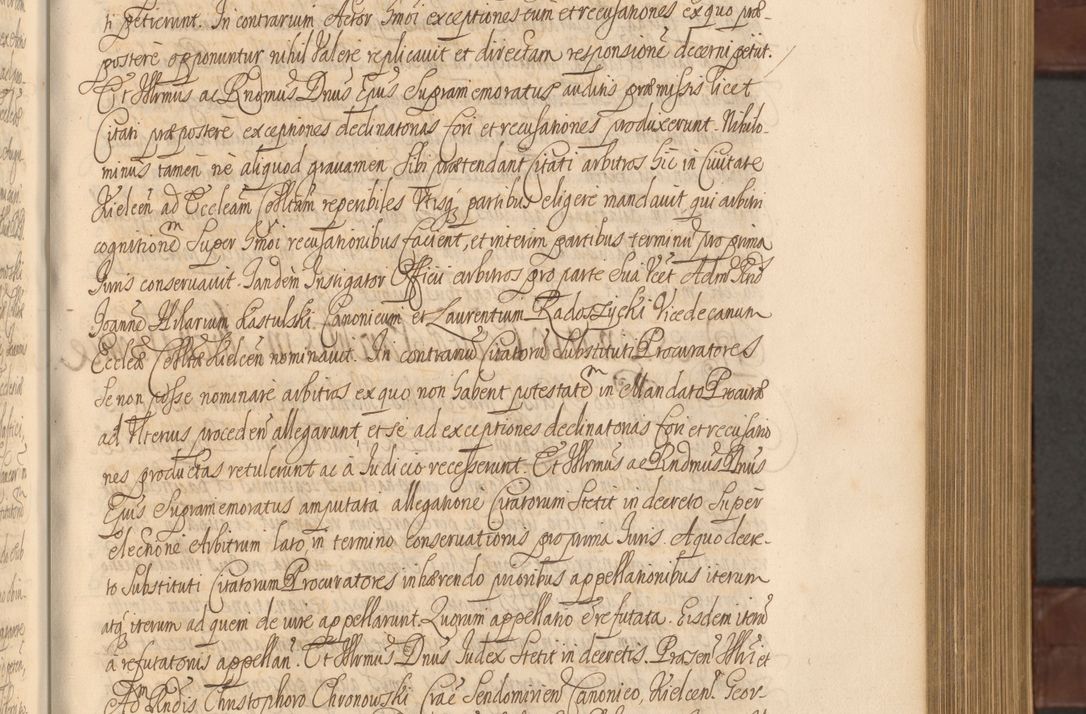 ti petierunt. In contrarium Actor hmoi exceptiones eum et recusationes ex quo præ-
postere opponuntur nihil valere replicavit et directam responsione decerni petiit.
Et Illrmus ac Rndmus Dnus Epus supramemoratus auditis præmissis licet
Citati præpostere exceptiones declinatorias fori et recusationes produxerunt. Nihilo-
minus tamen ne aliquod gravamen sibi prætendant Citati arbitros hic in Civitate
Kielcen ad Eccleam Colltam reperibiles utrisq partibus eligere mandavit qui arbitri
cognitionem super hmoi recusationibus facient, et interim partibus terminu pro prima
Juris conservavit. Tandem Instigator Officii arbitros pro parte sua Adm Rnd
Joanne Hilarium Kastulski Canonicum et Laurentium Radoszycki Vicedecanum
Eccleæ Colltæ Kielcen nominavit. In contrariu Citatoru Substituti Procuratores
se non posse nominare arbitros ex quo non habent potestatem in Mandato Procuræ
ad ulterius proceden allegarunt, et se ad exceptiones declinatorias fori et recusatio
nes productas retulerunt ac a Judicio recesserunt. Et Illrmus ac Rndmus Dnus
Epus Supramemoratus amputata allegatione Citatorum stetit in decreto super
electione Arbitrum lato, in termino conservationis pro prima Juris. A quo decre-
to Substituti Citatorum Procuratores inhærendo prioribus appellationibus iterum
atq iterum ad quem de iure appellarunt. Quorum appellatio e refutata. Eisdem iteru
a refutatoriis appellan. Et Illrmus Dnus Judex stetit in decretis. Præsen Illri et
Adm Rndis Christophoro Chronowski Cræ Sendomirien Canonico, Kielcen Geor-